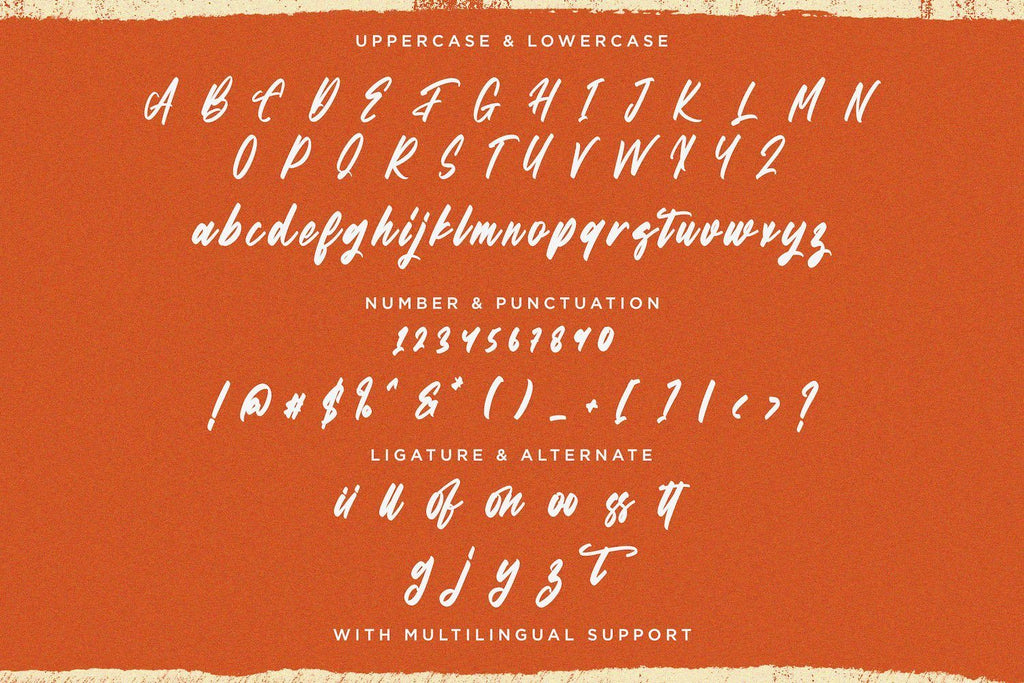 UPPERCASE & LOWERCASE
A B C D E F G H I J K L M N
O P Q R S T U V W X Y Z
abcdefghijklmnopqrstuvwxyz
NUMBER & PUNCTUATION
1234567890
!@#$%^&*()_+[]|<>?
LIGATURE & ALTERNATE
ii ll of on oo ss tt
g j y z t
WITH MULTILINGUAL SUPPORT